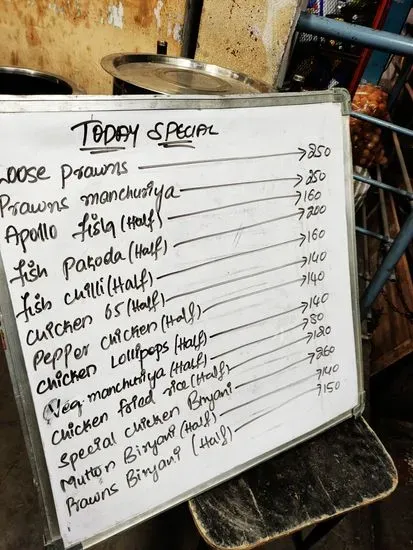 TODAY SPECIAL
Loose Prawns → 250
Prawns manchuriya → 250
Apollo fish (Half) → 160
fish Pakoda (Half) → 200
fish chilli (Half) → 160
chicken 65 (Half) → 140
Pepper chicken (Half) → 140
chicken Lollipops (Half) → 140
Veg manchuriya (Half) → 80
chicken fried rice (Half) →
special chicken Biryani → 260
Mutton Biryani (Half) → 140
Prawns Biryani (Half) → 150